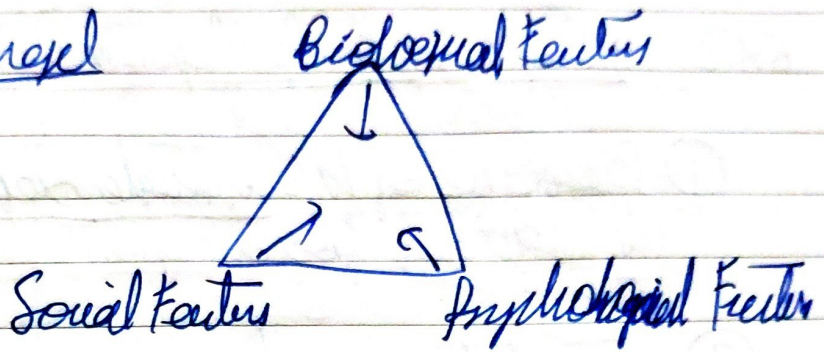 Biological Factors
Social Factors Psychological Factors